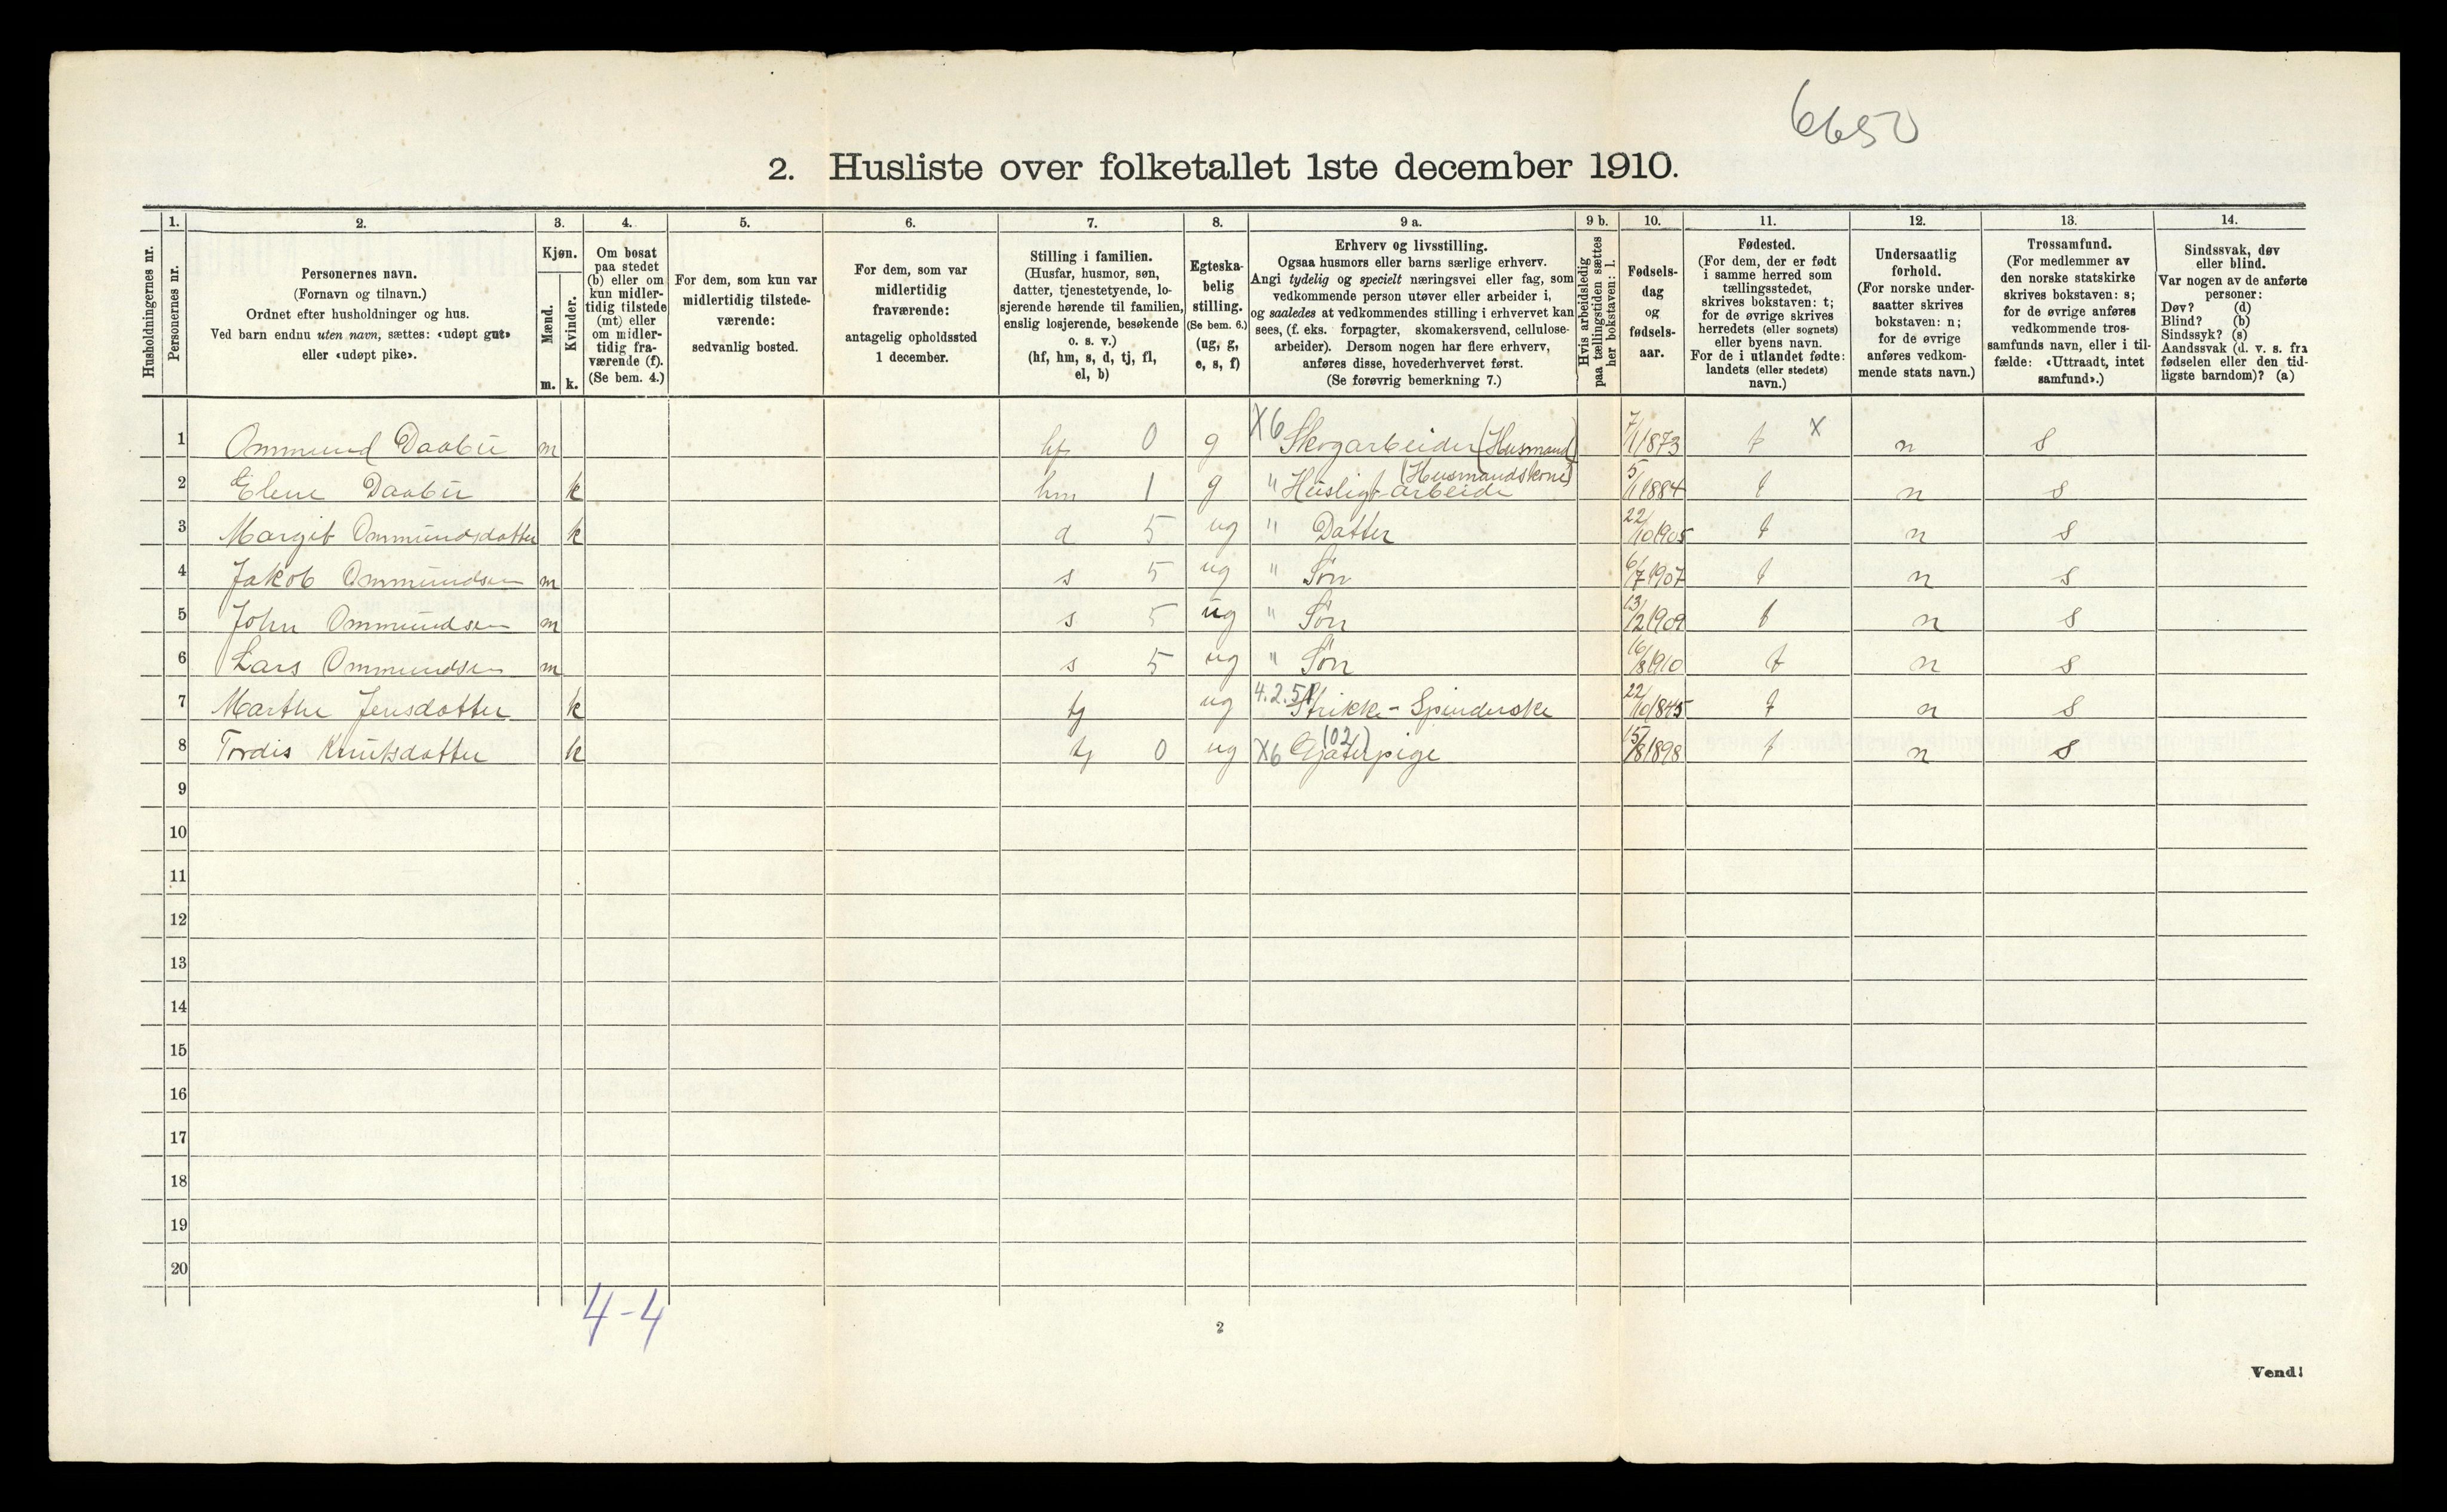 6650
2. Husliste over folketallet 1ste december 1910.
Husholdningernes nr.
1.
Personernes nr.
2.
Personernes navn.
(Fornavn og tilnavn.)
Ordnet efter husholdninger og hus.
Ved barn endnu uten navn, sættes: «udøpt gut»
eller «udøpt pike».
3.
Kjøn.
Mænd.
Kvinder.
m. k.
4.
Om bosat
paa stedet
(b) eller om
kun midler-
tidig tilstede
(mt) eller
om midler-
tidig fra-
værende (f).
(Se bem. 4.)
5.
For dem, som kun var
midlertidig tilstede-
værende:
sedvanlig bosted.
6.
For dem, som var
midlertidig
fraværende:
antagelig opholdssted
1 december.
7.
Stilling i familien.
(Husfar, husmor, søn,
datter, tjenestetyende, lo-
sjerende hørende til familien,
enslig losjerende, besøkende
o. s. v.)
(hf, hm, s, d, tj, fl,
el, b)
8.
Egteska-
belig
stilling.
(Se bem. 6.)
(ug, g,
e, s, f)
9 a.
Erhverv og livsstilling.
Ogsaa husmors eller barns særlige erhverv.
Angi tydelig og specielt næringsvei eller fag, som
vedkommende person utøver eller arbeider i,
og saaledes at vedkommendes stilling i erhvervet kan
sees, (f. eks. forpagter, skomakersvend, cellulose-
arbeider). Dersom nogen har flere erhverv,
anføres disse, hovederhvervet først.
(Se forøvrig bemerkning 7.)
9 b.
Hvis arbeidsledig
paa tællingstiden sættes
her bokstaven: l.
10.
Fødsels-
dag
og
fødsels-
aar.
11.
Fødested.
(For dem, der er født
i samme herred som
tællingsstedet,
skrives bokstaven: t;
for de øvrige skrives
herredets (eller sognets)
eller byens navn.
For de i utlandet fødte:
landets (eller stedets)
navn.)
12.
Undersaatlig
forhold.
(For norske under-
saatter skrives
bokstaven: n;
for de øvrige
anføres vedkom-
mende stats navn.)
13.
Trossamfund.
(For medlemmer av
den norske statskirke
skrives bokstaven: s;
for de øvrige anføres
vedkommende tros-
samfunds navn, eller i til-
fælde: «Uttraadt, intet
samfund».)
14.
Sindssvak, døv
eller blind.
Var nogen av de anførte
personer:
Døv? (d)
Blind? (b)
Sindssyk? (s)
Aandssvak (d. v. s. fra
fødselen eller den tid-
ligste barndom)? (a)
1 Ommund Daabu m hf 0 g X6 Skogarbeider (Husmand) 7/1 1873 t X n s
2 Elene Daabu k hm 1 g " Husligt arbeide (Husmandskone) 5/1 1884 t n s
3 Margit Ommundsdatter k d 5 ug " Datter 22/10 1905 t n s
4 Jakob Ommundsen m s 5 ug " Søn 6/7 1907 t n s
5 John Ommundsen m s 5 ug " Søn 13/2 1909 t n s
6 Lars Ommundsen m s 5 ug " Søn 16/8 1910 t n s
7 Marthe Jensdatter k tj ug 4.2.51 Strikke- Spinderske 22/10 1845 t n s
8 Tordis Knutsdatter k tj 0 ug X6 Gjæterpige (02) 15/8 1898 t n s
9
10
11
12
13
14
15
16
17
18
19
20
4-4
2
Vend!